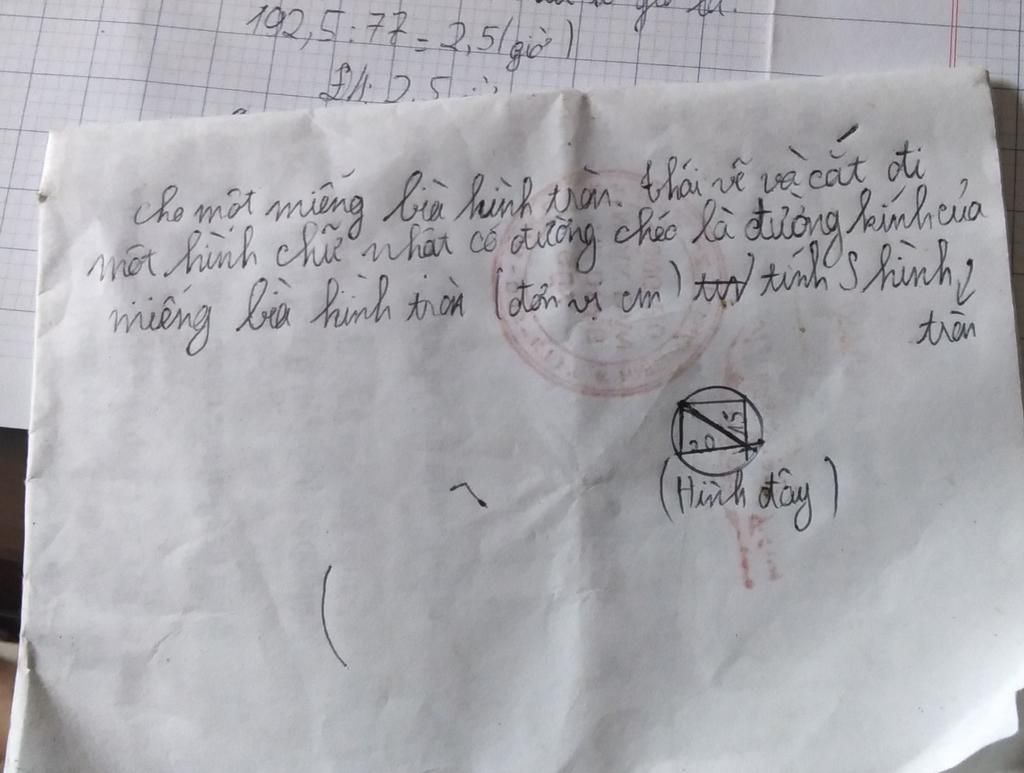 192,5:77=2,5(giờ)
cho một miếng bìa hình tròn. thái vẽ và cắt đi
một hình chữ nhât có đường chéo là đường kính của
miếng bìa hình tròn (đơn vị cm) tính S hình
tròn
15
20
(Hình đây)